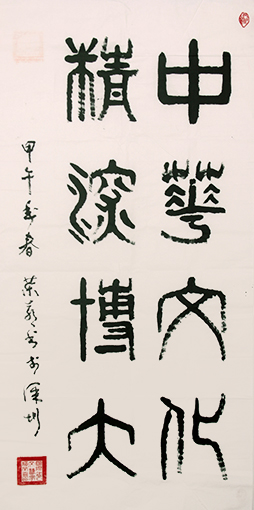 中華文化
精深博大
甲午年春
书於深圳